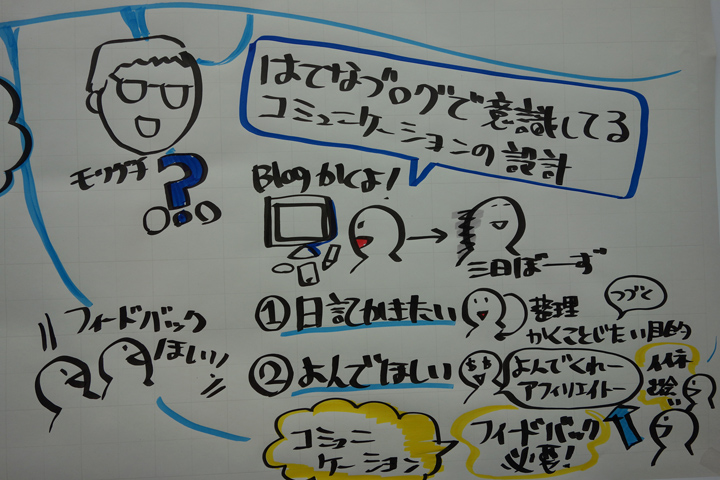 はてなブログで意識してる
コミュニケーションの設計
モリグチ
?
Blogかくよ!
三日ぼーず
①日記かきたい
整理
つづく
かくことじたい目的
フィードバック
ほしい!
②よんでほしい
¥¥
よんでくれー
アフィリエイトー
コミュニ
ケーション
フィードバック
必要!